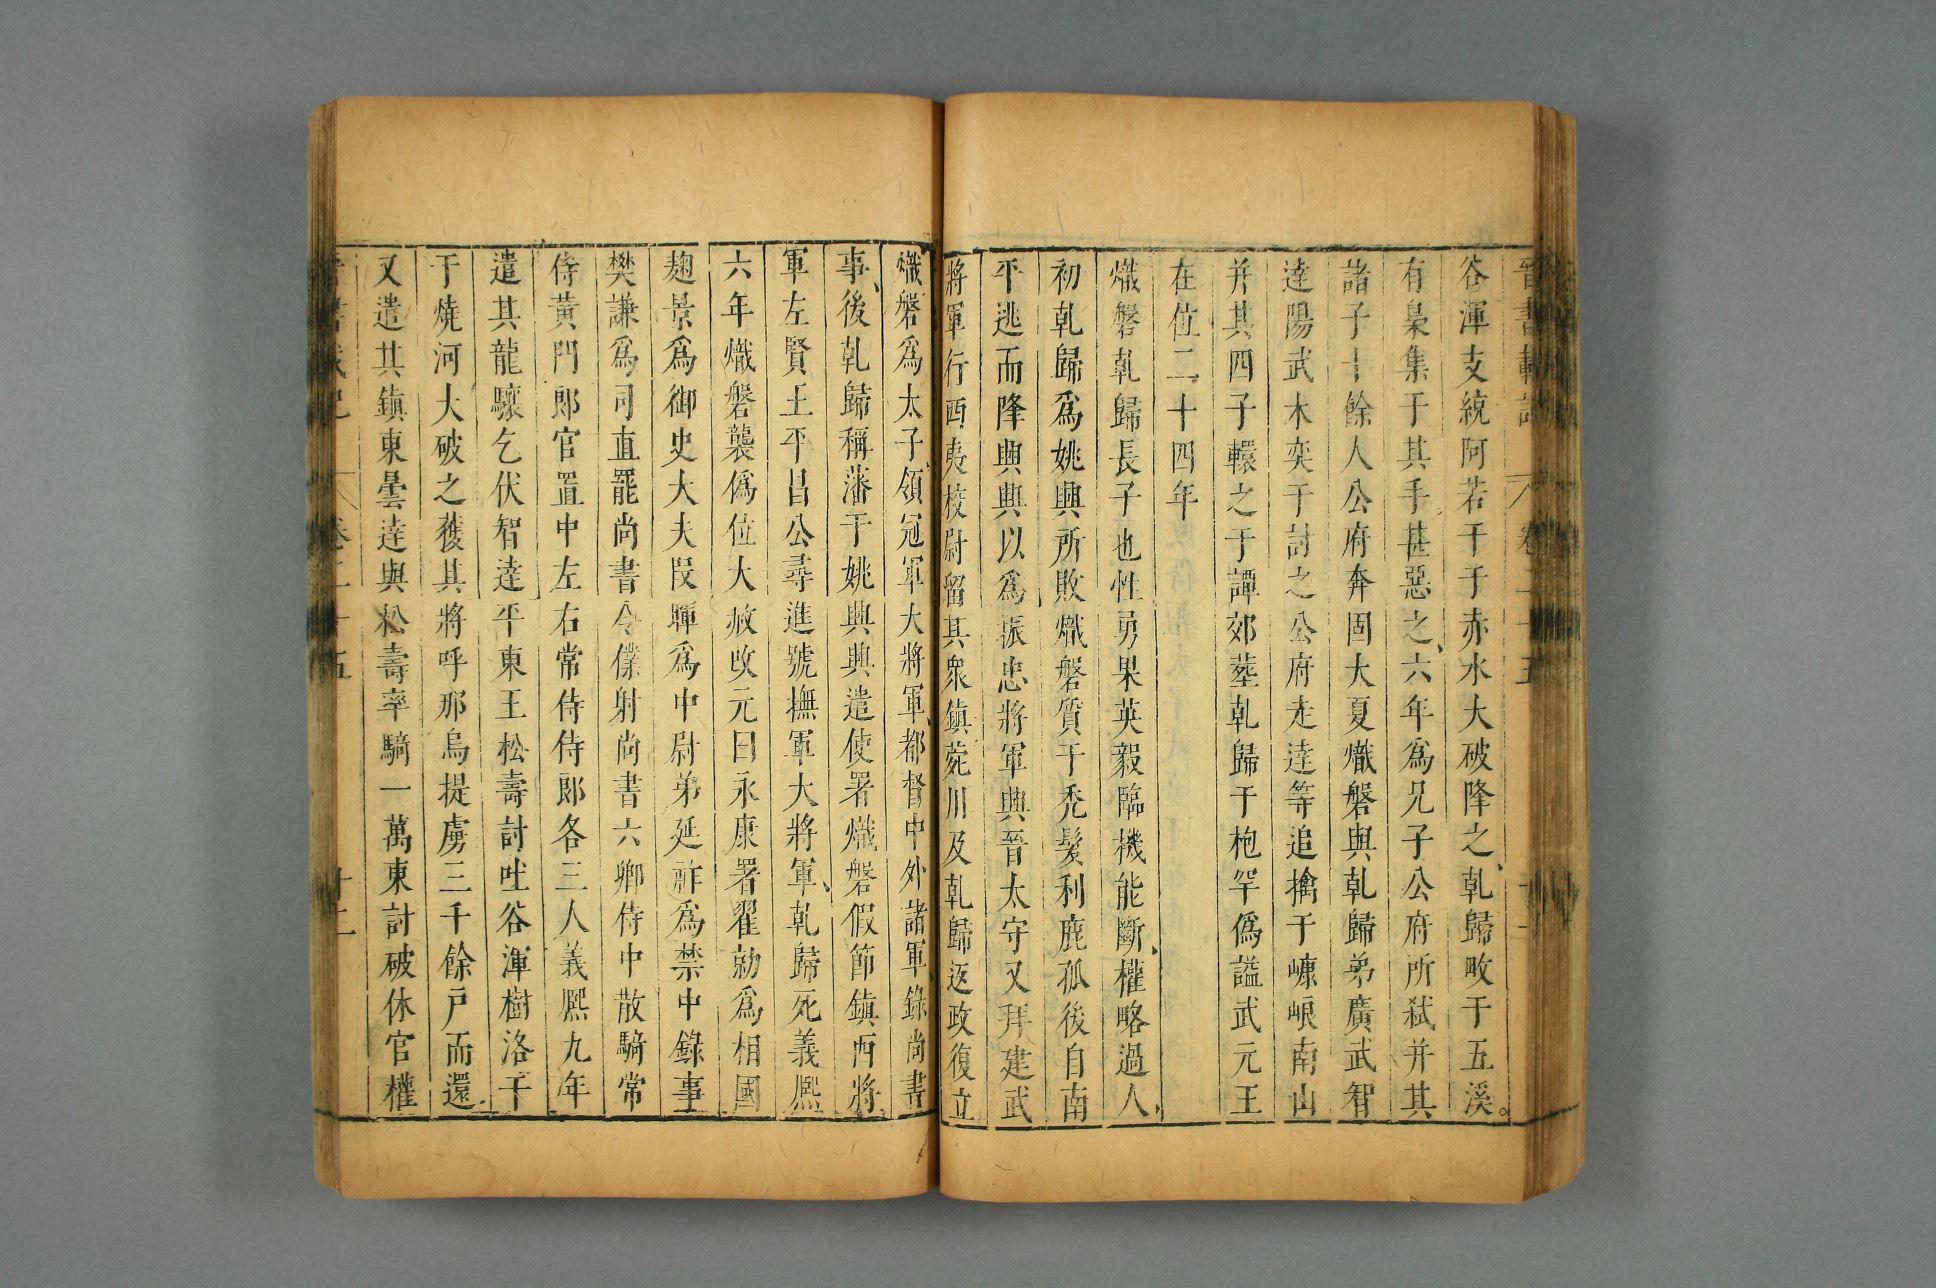 晉書載記 卷二十五
谷渾支統阿若干于赤水大破降之乹歸畋于五溪
有梟集于其手甚惡之六年爲兄子公府所弑并其
諸子十餘人公府奔固大夏熾磐與乹歸弟廣武智
逹陽武木奕于討之公府走逹等追擒于嵻崀南山
并其四子轘之于譚郊葬乹歸于枹罕僞謚武元王
在位二十四年
熾磐乹歸長子也性勇果英毅臨機能斷權略過人
初乹歸爲姚興所敗熾磐質于禿髪利鹿孤後自南
平逃而降興興以爲振忠將軍興晉太守又拜建武
將軍行西夷校尉留其衆鎮苑川及乹歸返政復立
熾磐爲太子領冠軍大將軍都督中外諸軍錄尚書
事後乹歸稱藩于姚興興遣使署熾磐假節鎮西將
軍左賢王平昌公尋進號撫軍大將軍乹歸死義熙
六年熾磐襲僞位大赦改元曰永康署翟勍爲相國
麹景爲御史大夫段暉爲中尉弟延祚爲禁中錄事
樊謙爲司直罷尚書令僕射尚書六卿侍中散騎常
侍黃門郎官置中左右常侍侍郎各三人義熙九年
遣其龍驤乞伏智逹平東王松壽討吐谷渾樹洛干
于燒河大破之獲其將呼那烏提虜三千餘戶而還
又遣其鎮東曇逹與松壽率騎一萬東討破休官權
卷二十五 十二